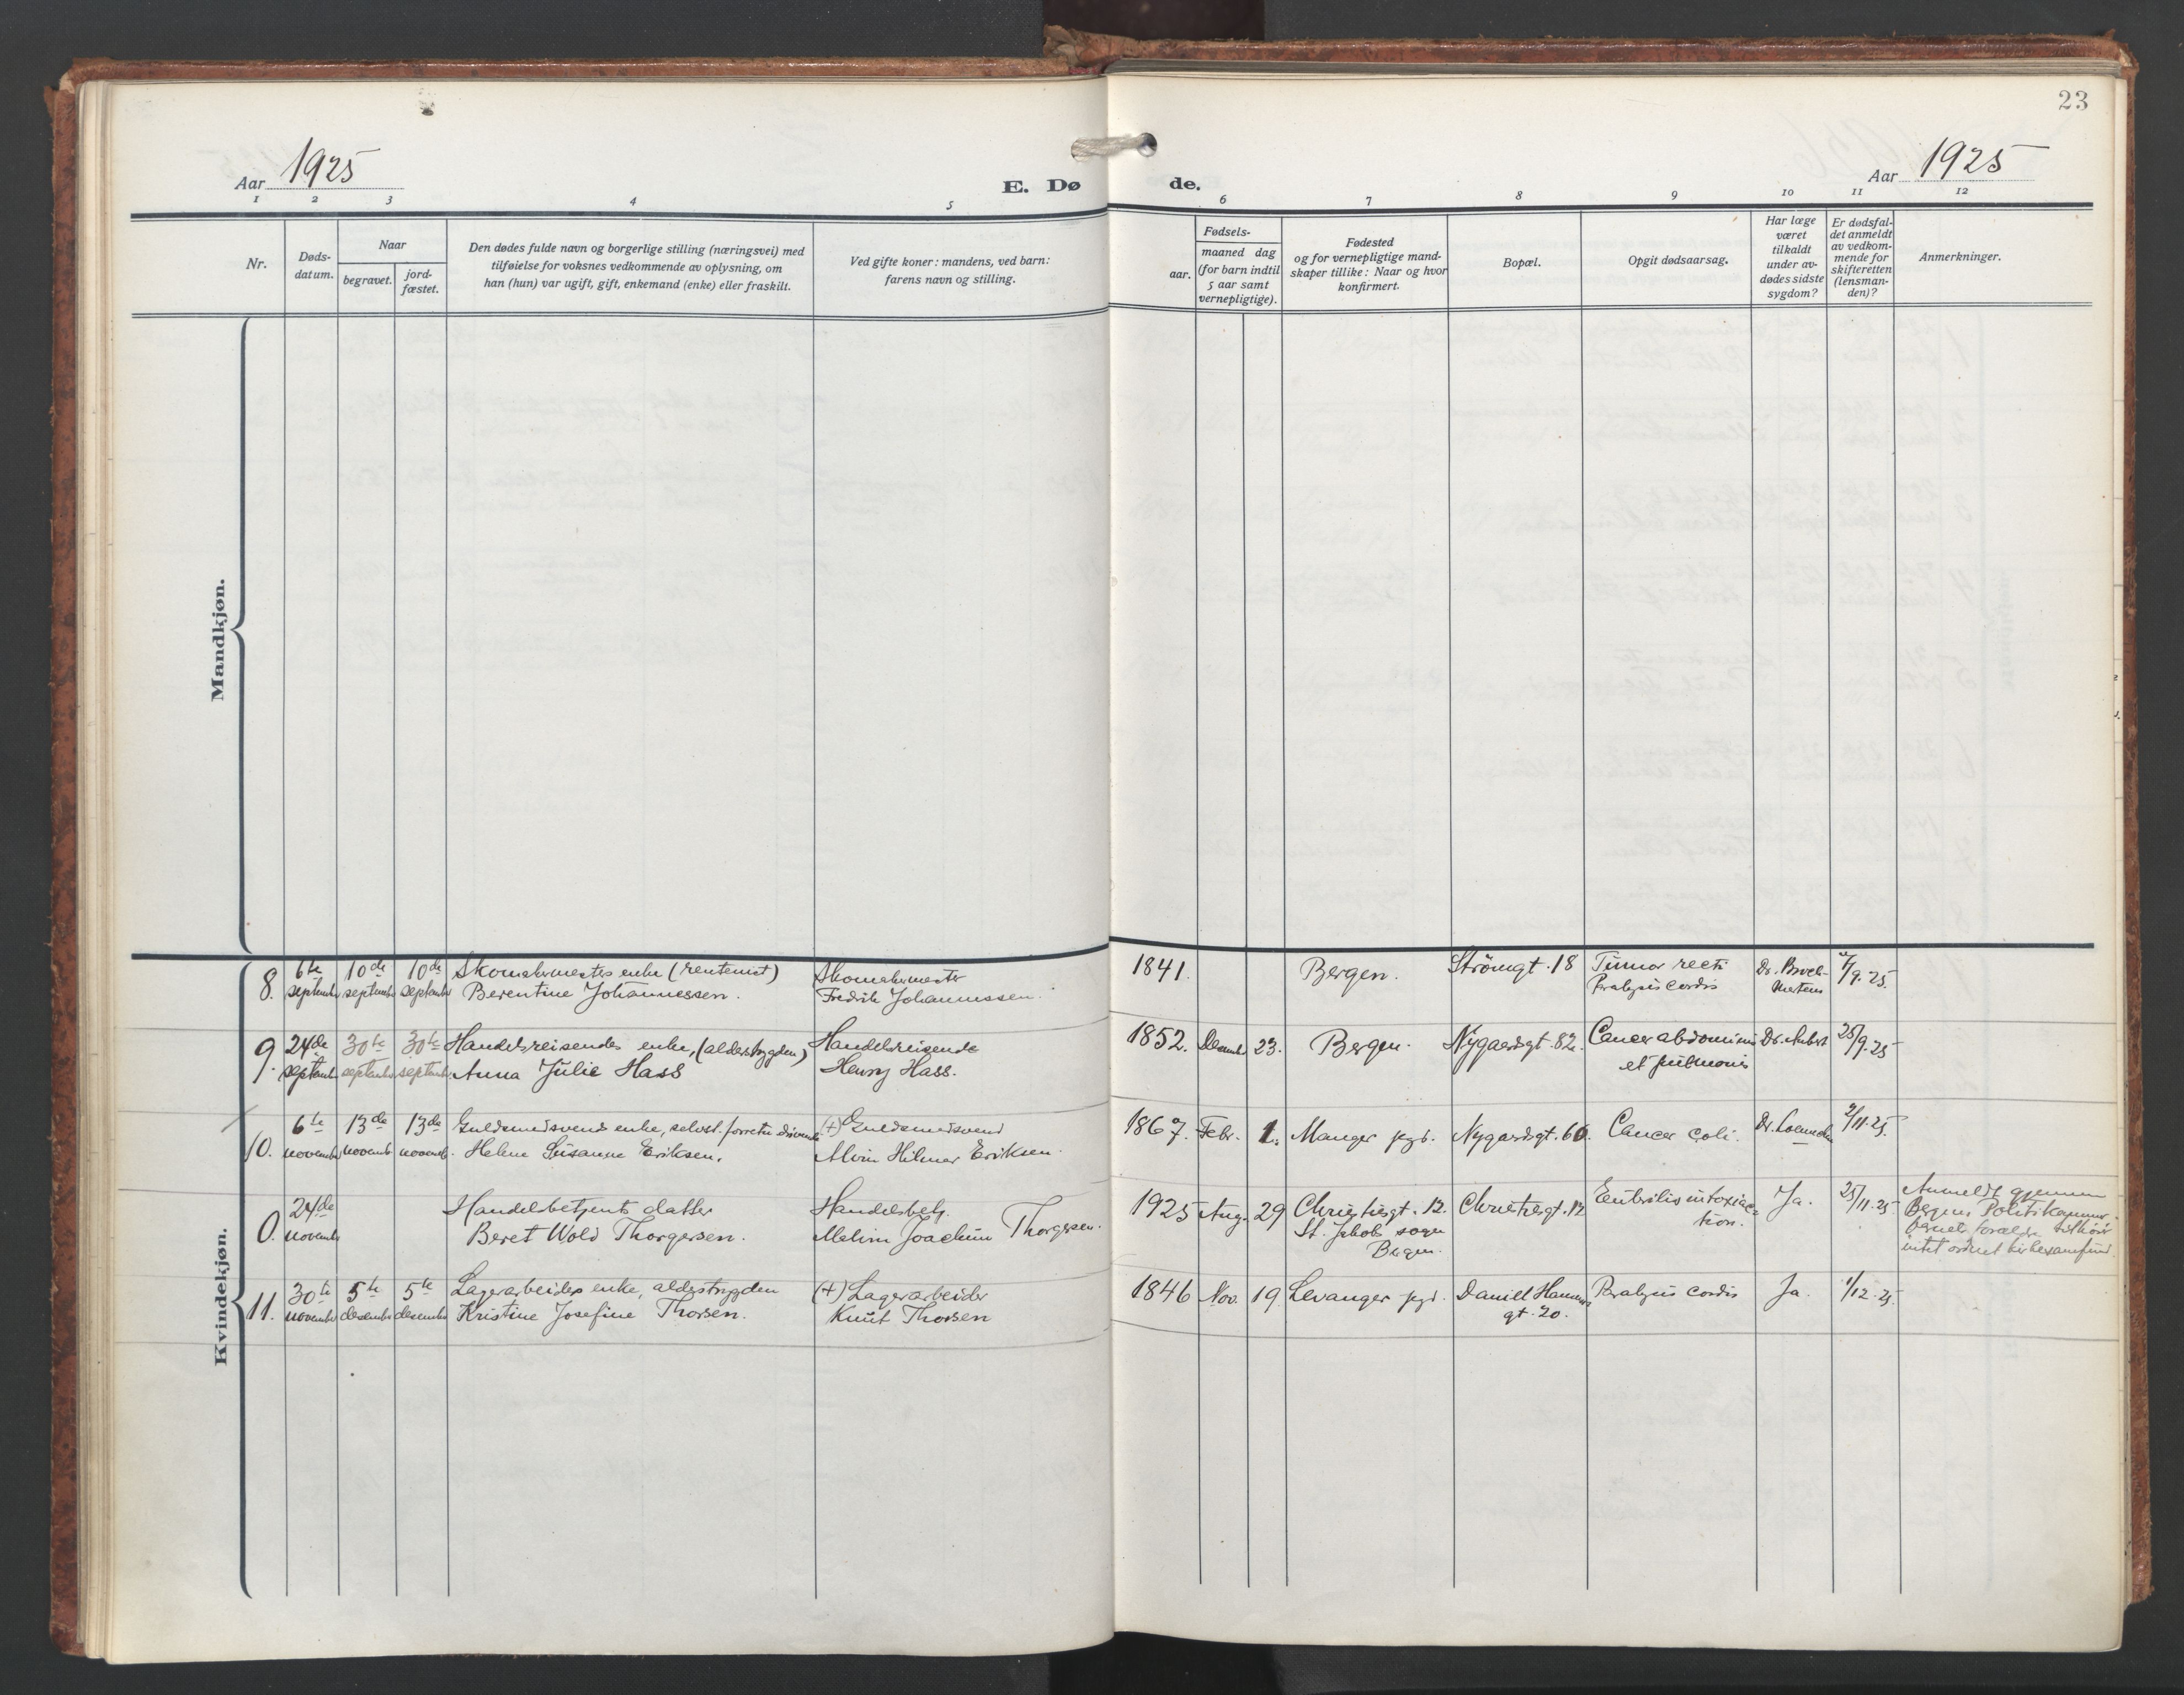 23
Aar 1925
E. Dø
de.
Aar 1925
1 2 3 4 5
6 7 8 9 10 11 12
Nr.
Døds-
datum.
Naar
begravet.
jord-
fæstet.
Den dødes fulde navn og borgerlige stilling (næringsvei) med
tilføielse for voksnes vedkommende av oplysning, om
han (hun) var ugift, gift, enkemand (enke) eller fraskilt.
Ved gifte koner: mandens, ved barn:
farens navn og stilling.
aar.
Fødsels-
maaned dag
(for barn indtil
5 aar samt
vernepligtige).
Fødested
og for vernepligtige mand-
skaper tillike: Naar og hvor
konfirmert.
Bopæl.
Opgit dødsaarsag.
Har læge
været
tilkaldt
under av-
dødes sidste
sygdom?
Er dødsfal-
det anmeldt
av vedkom-
mende for
skifteretten
(lensman-
den)?
Anmerkninger.
Mandkjøn.
Kvindekjøn.
8.
6te
september
10de
september
10de
september
Skomakermesters enke (rentenist)
Berentine Johannessen.
Skomakermester
Fredrik Johannessen.
1841.
Bergen.
Strömgt. 18
Tumor recti
Paralysis cordis
Dr.
Mertens
/9. 25.
9.
24de
septemb.
30te
september
30te
septemb.
Handelsreisendes enke, (alderstrygden)
Anna Julie Hass
Handelsreisende
Henry Hass.
1852.
Decemb.
23.
Bergen.
Nygaardsgt. 82.
Cancer abdominis
et pulmonis
Dr. Aubert
25/9. 25
10.
6te
novemb.
13de
novemb.
13de
novemb.
Guldsmedsvends enke, selvst. forretn. drivende
Helene Susanne Eriksen.
(+) Guldsmedsvend
Alvin Hilmer Eriksen.
1867.
Febr.
1.
Manger pgd.
Nygaardsgt. 60.
Cancer coli.
Dr.
/11. 25.
0.
24de
novemb.
Handelsbetjents datter
Beret Wold Thorgersen.
Handelsbetj.
Melvin Joachim Thorgersen.
1925
Aug.
29
Christiesgt. 12.
St. Jakobs sogn
Bergen.
Christiesgt. 12
intoxica-
tion.
Ja.
25/11. 25
Anmeldt gjennem
Bergens Politikammer.
Barnets forældre tilhörer
intet ordnet kirkesamfund.
11.
30te
novemb.
5te
desember
5te
desember
Lagerarbeiders enke, alderstrygden
Kristine Josefine Thorsen.
(+) Lagerarbeider
Knut Thorsen
1846
Nov.
19
Levanger pgd.
Daniel Hansens
gt. 20.
Paralysis cordis
Ja.
1/12. 25.